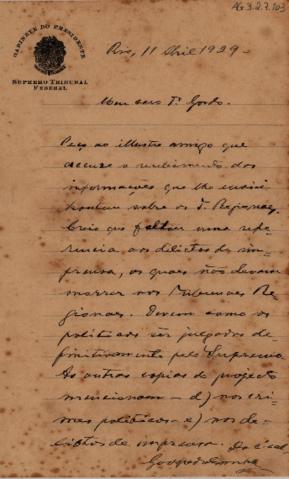 AG 3.2.7.103
GABINETE DO PRESIDENTE
SUPREMO TRIBUNAL
FEDERAL
Rio, 11 Abril 1929
Meu caro Dr. Gordo.
Peço ao illustre amigo que
accuse o recebimento das
informações que lhe
sobre os T. Regionaes
Creio que faltou uma refe-
rencia aos delictos de im-
prensa, os quaes não devem
morrer nos Tribunaes Re-
gionaes. Devem como os
politicos ser julgados de-
finitivamente pelo Supremo
As outras copias do projecto
mencionam - d) nos cri-
mes politicos - e) nos de-
lictos de imprensa.